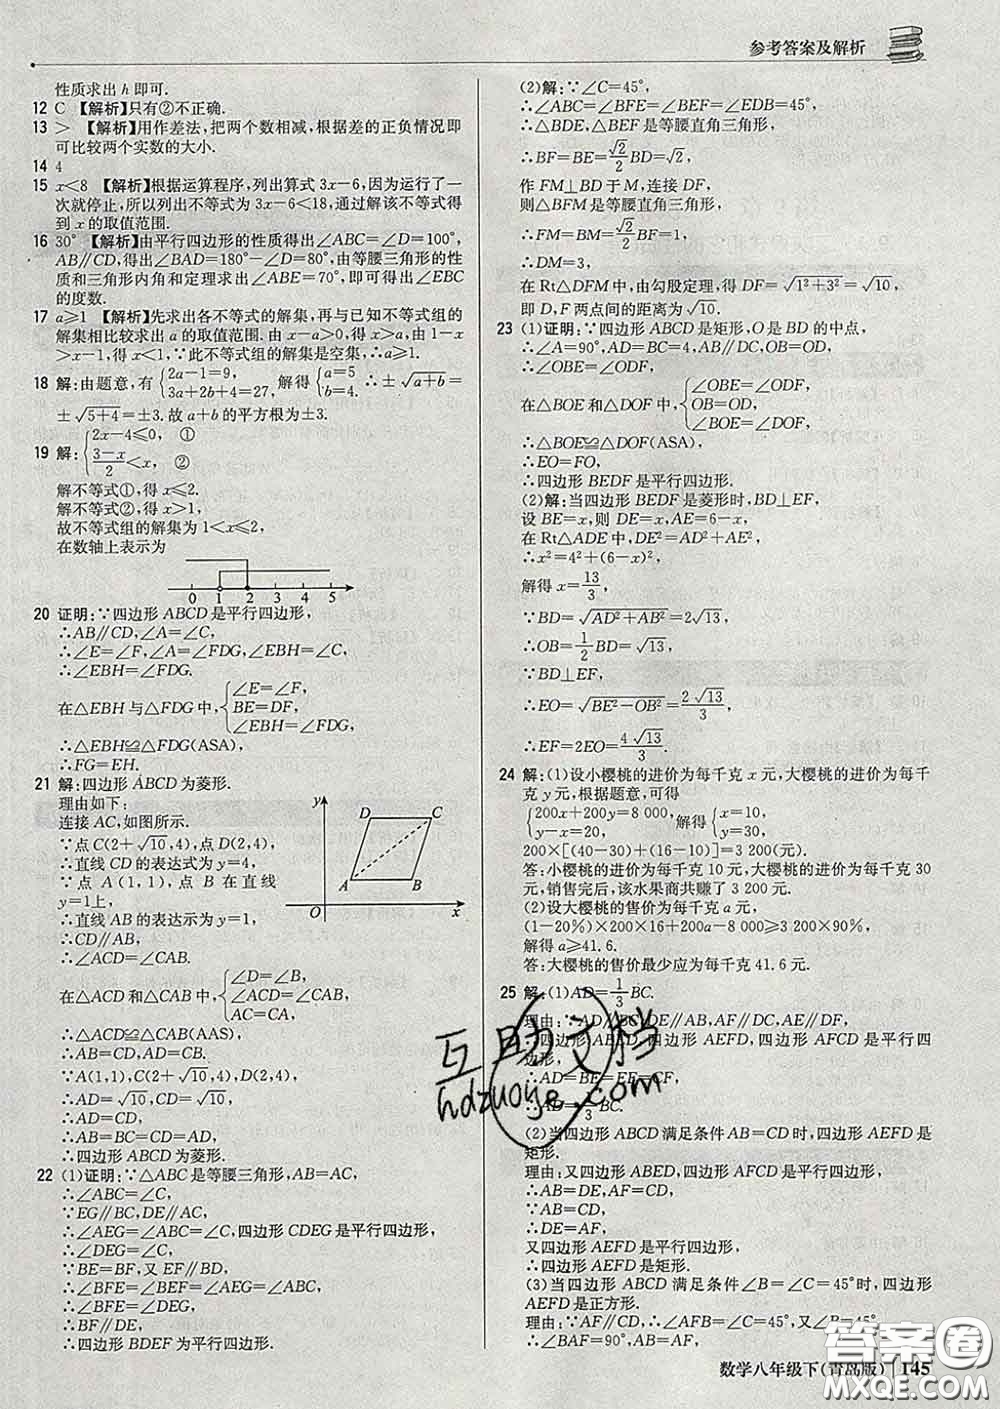 参考答案及解析
性质求出 h 即可.
12 C 【解析】只有②不正确.
13 > 【解析】用作差法,把两个数相减,根据差的正负情况即
可比较两个实数的大小.
14 4
15 x<8 【解析】根据运算程序,列出算式 3x-6,因为运行了一
次就停止,所以列出不等式为 3x-6<18,通过解该不等式得
到 x 的取值范围.
16 30° 【解析】由平行四边形的性质得出∠ABC=∠D=100°,
AB∥CD,得出∠BAD=180°-∠D=80°,由等腰三角形的性
质和三角形内角和定理求出∠ABE=70°,即可得出∠EBC
的度数.
17 a≥1 【解析】先求出各不等式的解集,再与已知不等式组的
解集相比较求出 a 的取值范围. 由 x-a>0,得 x>a,由 1-x
>x-1,得 x<1,∵此不等式组的解集是空集,∴a≥1.
18 解:由题意,有{2a-1=9, 3a+2b+4=27, 解得{a=5 b=4 ∴±√(a+b)=
±√(5+4)=±3. 故 a+b 的平方根为±3.
19 解:{2x-4≤0, ① (3-x)/2<x, ②
解不等式①,得 x≤2.
解不等式②,得 x>1,
故不等式组的解集为 1<x≤2,
在数轴上表示为
0 1 2 3 4 5
20 证明:∵四边形 ABCD 是平行四边形,
∴AB∥CD,∠A=∠C,
∴∠E=∠F,∠A=∠FDG,∠EBH=∠C,
∴∠EBH=∠FDG.
在△EBH 与△FDG 中,{∠E=∠F, BE=DF, ∠EBH=∠FDG,
∴△EBH≌△FDG(ASA),
∴FG=EH.
21 解:四边形 ABCD 为菱形.
理由如下:
连接 AC,如图所示.
∵点 C(2+√10,4),点 D(2,4),
∴直线 CD 的表达式为 y=4,
∵点 A(1,1),点 B 在直线
y=1上,
∴直线 AB 的表达示为 y=1,
∴CD∥AB,
∴∠ACD=∠CAB.
y D C A B O x
在△ACD 和△CAB 中,{∠D=∠B, ∠ACD=∠CAB, AC=CA,
∴△ACD≌△CAB(AAS),
∴AB=CD,AD=CB.
∵A(1,1),C(2+√10,4),D(2,4),
∴AD=√10,CD=√10,
∴AD=CD,
∴AB=BC=CD=AD,
∴四边形 ABCD 为菱形.
22 (1)证明:∵△ABC 是等腰三角形,AB=AC,
∴∠ABC=∠C,
∵EG∥BC,DE∥AC,
∴∠AEG=∠ABC=∠C,四边形 CDEG 是平行四边形,
∴∠DEG=∠C,
∵BE=BF,
∴∠BFE=∠BEF=∠AEG=∠ABC,
∴∠BFE=∠DEG,
∴BF∥DE,
∴四边形 BDEF 为平行四边形.
(2)解:∵∠C=45°,
∴∠ABC=∠BFE=∠BEF=∠EDB=45°,
∴△BDE,△BEF 是等腰直角三角形,
∴BF=BE=√2/2 BD=√2,
作 FM⊥BD 于 M,连接 DF,
则△BFM 是等腰直角三角形,
∴FM=BM=√2/2 BF=1,
∴DM=3,
在 Rt△DFM 中,由勾股定理,得 DF=√(1²+3²)=√10,
即 D,F 两点间的距离为√10.
23 (1)证明:∵四边形 ABCD 是矩形,O 是 BD 的中点,
∴∠A=90°,AD=BC=4,AB∥DC,OB=OD,
∴∠OBE=∠ODF,
在△BOE 和△DOF 中,{∠OBE=∠ODF, OB=OD, ∠BOE=∠DOF,
∴△BOE≌△DOF(ASA),
∴EO=FO,
∴四边形 BEDF 是平行四边形.
(2)解:当四边形 BEDF 是菱形时,BD⊥EF,
设 BE=x,则 DE=x,AE=6-x,
在 Rt△ADE 中,DE²=AD²+AE²,
∴x²=4²+(6-x)²,
解得 x=13/3,
∵BD=√(AD²+AB²)=2√13,
∴OB=1/2 BD=√13,
∵BD⊥EF,
∴EO=√(BE²-OB²)=2√13/3,
∴EF=2EO=4√13/3.
24 解:(1)设小樱桃的进价为每千克 x 元,大樱桃的进价为每千
克 y 元,根据题意,可得
{200x+200y=8 000, y-x=20, 解得{x=10, y=30,
200×[(40-30)+(16-10)]=3 200(元).
答:小樱桃的进价为每千克 10 元,大樱桃的进价为每千克 30
元,销售完后,该水果商共赚了 3 200 元.
(2)设大樱桃的售价为每千克 a 元,
(1-20%)×200×16+200a-8 000≥3 200×90%,
解得 a≥41.6.
答:大樱桃的售价最少应为每千克 41.6 元.
25 解:(1)AD=1/3 BC.
理由:∵AD∥BC,DE∥AB,AF∥DC,AE∥DF,
∴四边形 ABED,四边形 AEFD,四边形 AFCD 是平行四
边形,
∴AD=BE=EF=CF,
∴AD=1/3 BC.
(2)当四边形 ABCD 满足条件 AB=CD 时,四边形 AEFD 是
矩形.
理由:又四边形 ABED,四边形 AFCD 是平行四边形,
∴AB=DE,AF=CD,
∵AB=CD,
∴DE=AF,
又四边形 AEFD 是平行四边形,
∴四边形 AEFD 是矩形.
(3)当四边形 ABCD 满足条件∠B=∠C=45°时,四边形
AEFD 是正方形.
理由:∵AF∥CD,∴∠AFB=∠C=45°,又∠B=45°,
∴∠BAF=90°,AB=AF,
互助文档
hdzuoye.com
数学八年级下(青岛版) 145
答案圈
MXQE.COM